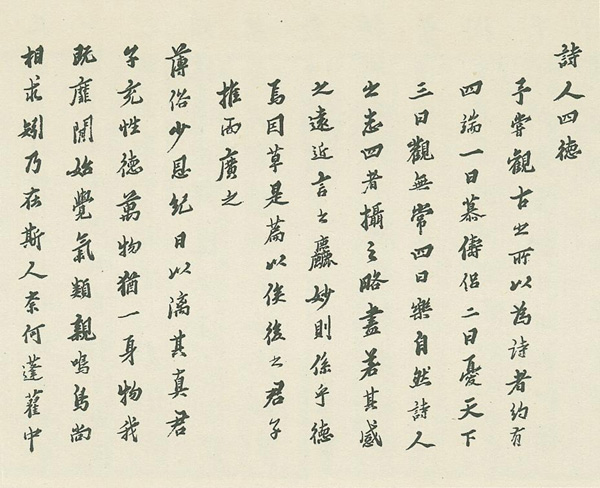 詩人四德
予嘗觀古之所以為詩者約有
四端一曰慕儔侶二曰憂天下
三曰觀無常四曰樂自然詩人
之志四者攝之略盡若其感
之遠近言之麤妙則係乎德
焉因草是篇以俟後之君子
推而廣之
薄俗少恩紀日以漓其真君
子充性德萬物猶一身物我
既靡閒始覺氣類親鳴鳥尚
相求矧乃在斯人柰何蓬藋中